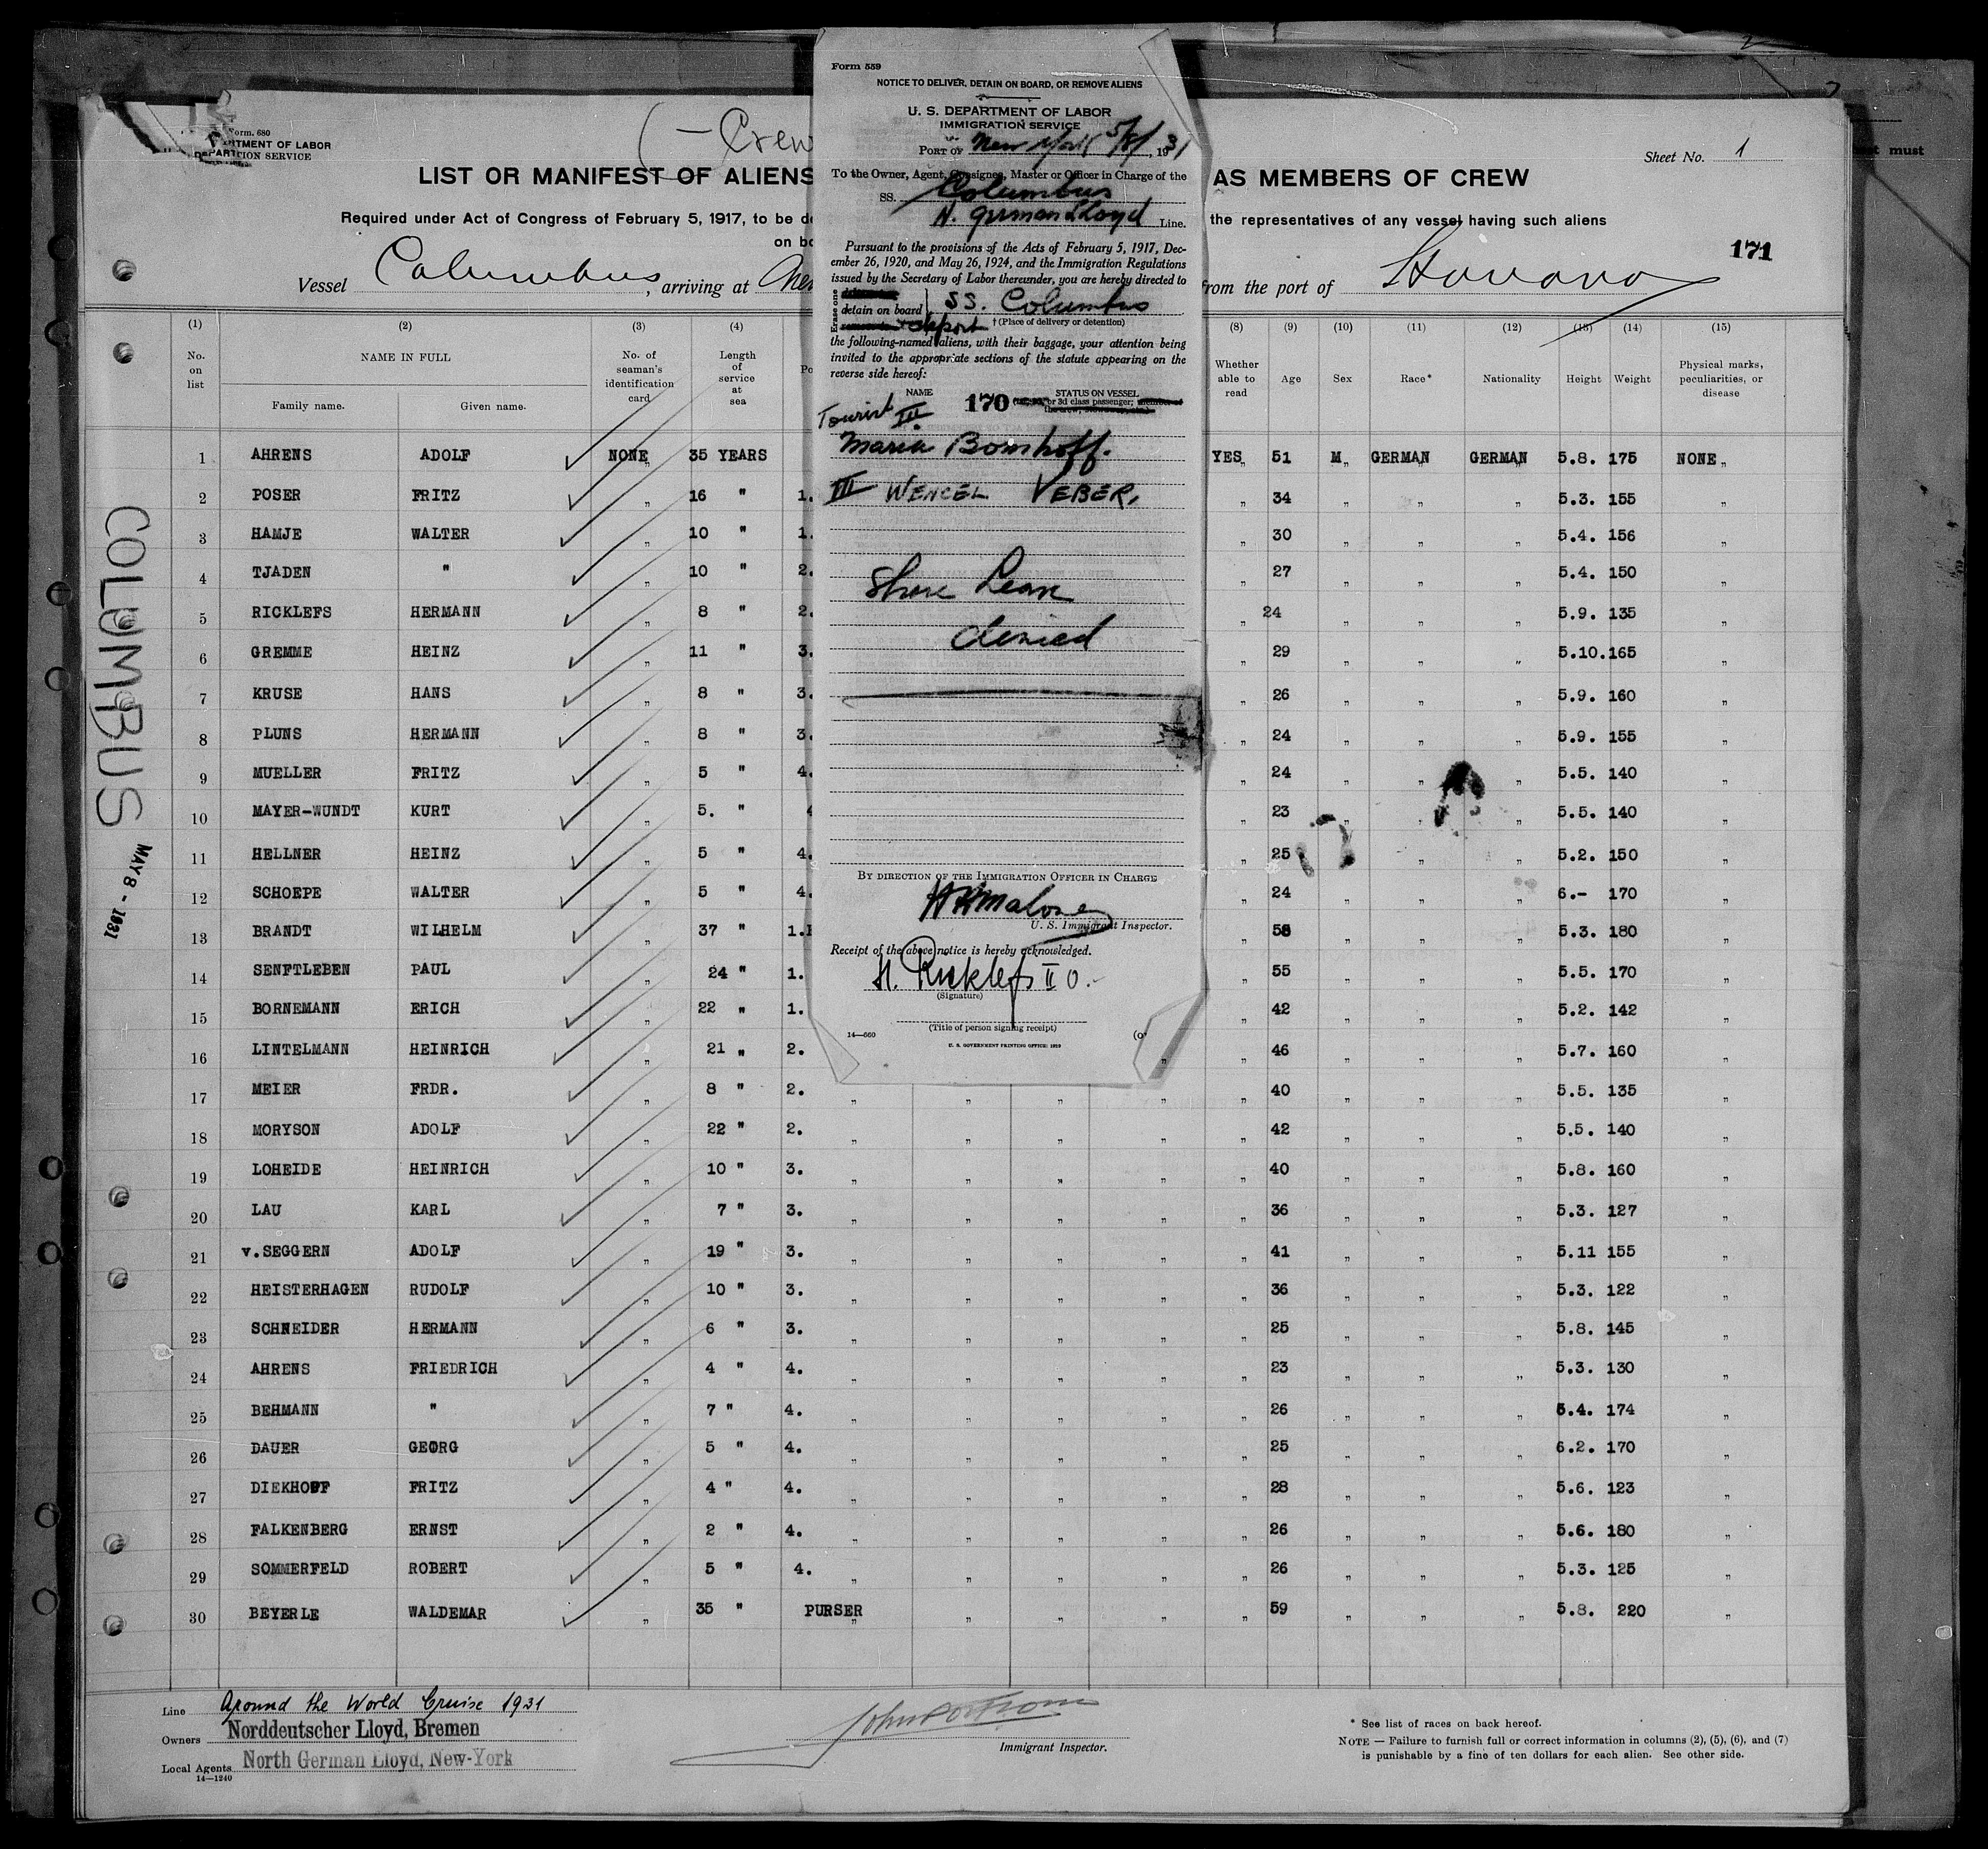 Form 559
NOTICE TO DELIVER, DETAIN ON BOARD, OR REMOVE ALIENS
U. S. DEPARTMENT OF LABOR
IMMIGRATION SERVICE
PORT OF New York 5/8/, 1931
To the Owner, Agent, Consignee, Master or Officer in Charge of the
SS. Columbus
N. German Lloyd Line.
Pursuant to the provisions of the Acts of February 5, 1917, Dec-
ember 26, 1920, and May 26, 1924, and the Immigration Regulations
issued by the Secretary of Labor thereunder, you are hereby directed to
Erase one
detain on board } SS. Columbus
+ deport † (Place of delivery or detention)
the following-named aliens, with their baggage, your attention being
invited to the appropriate sections of the statute appearing on the
reverse side hereof:
NAME STATUS ON VESSEL
170 or 3d class passenger;
Tourist III.
Maria Bomhoff.
III WENCEL VEBER.
Shore Leave
denied
BY DIRECTION OF THE IMMIGRATION OFFICER IN CHARGE
Malone
U. S. Immigrant Inspector.
Receipt of the above notice is hereby acknowledged.
H. Ricklefs II O.
(Signature)
(Title of person signing receipt)
14—660
U. S. GOVERNMENT PRINTING OFFICE: 1929
Form. 680
RTMENT OF LABOR
TION SERVICE
(— Crew
Sheet No. 1
LIST OR MANIFEST OF ALIENS AS MEMBERS OF CREW
Required under Act of Congress of February 5, 1917, to be de the representatives of any vessel having such aliens
on bo
171
Vessel Columbus, arriving at New from the port of Havana
COLUMBUS
MAY 8 - 1931
(1) (2) (3) (4) (8) (9) (10) (11) (12) (13) (14) (15)
No. on list NAME IN FULL Family name. Given name. No. of seaman's identification card Length of service at sea Po Whether able to read Age Sex Race* Nationality Height Weight Physical marks, peculiarities, or disease
1 AHRENS ADOLF NONE 35 YEARS YES 51 M GERMAN GERMAN 5.8. 175 NONE
2 POSER FRITZ „ 16 " 1. „ 34 „ „ „ 5.3. 155 „
3 HAMJE WALTER „ 10 " 1. „ 30 „ „ „ 5.4. 156 „
4 TJADEN " „ 10 " 2. „ 27 „ „ „ 5.4. 150 „
5 RICKLEFS HERMANN „ 8 " 2. „ 24 „ „ „ 5.9. 135 „
6 GREMME HEINZ „ 11 " 3. „ 29 „ „ „ 5.10. 165 „
7 KRUSE HANS „ 8 " 3. „ 26 „ „ „ 5.9. 160 „
8 PLUNS HERMANN „ 8 " 3. „ 24 „ „ „ 5.9. 155 „
9 MUELLER FRITZ „ 5 " 4. „ 24 „ „ „ 5.5. 140 „
10 MAYER-WUNDT KURT „ 5. " 4 „ 23 „ „ „ 5.5. 140 „
11 HELLNER HEINZ „ 5 " 4. „ 25 „ „ „ 5.2. 150 „
12 SCHOEPE WALTER „ 5 " 4. „ 24 „ „ „ 6.- 170 „
13 BRANDT WILHELM „ 37 " 1. „ 58 „ „ „ 5.3. 180 „
14 SENFTLEBEN PAUL „ 24 " 1. „ 55 „ „ „ 5.5. 170 „
15 BORNEMANN ERICH „ 22 „ 1. „ 42 „ „ „ 5.2. 142 „
16 LINTELMANN HEINRICH „ 21 „ 2. „ 46 „ „ „ 5.7. 160 „
17 MEIER FRDR. „ 8 " 2. „ „ „ „ „ 40 „ „ „ 5.5. 135 „
18 MORYSON ADOLF „ 22 " 2. „ „ „ „ „ 42 „ „ „ 5.5. 140 „
19 LOHEIDE HEINRICH „ 10 " 3. „ „ „ „ „ 40 „ „ „ 5.8. 160 „
20 LAU KARL „ 7 " 3. „ „ „ „ „ 36 „ „ „ 5.3. 127 „
21 v.SEGGERN ADOLF „ 19 " 3. „ „ „ „ „ 41 „ „ „ 5.11 155 „
22 HEISTERHAGEN RUDOLF „ 10 " 3. „ „ „ „ „ 36 „ „ „ 5.3. 122 „
23 SCHNEIDER HERMANN „ 6 " 3. „ „ „ „ „ 25 „ „ „ 5.8. 145 „
24 AHRENS FRIEDRICH „ 4 " 4. „ „ „ „ „ 23 „ „ „ 5.3. 130 „
25 BEHMANN " „ 7 " 4. „ „ „ „ „ 26 „ „ „ 5.4. 174 „
26 DAUER GEORG „ 5 " 4. „ „ „ „ „ 25 „ „ „ 6.2. 170 „
27 DIEKHOFF FRITZ „ 4 " 4. „ „ „ „ „ 28 „ „ „ 5.6. 123 „
28 FALKENBERG ERNST „ 2 " 4. „ „ „ „ „ 26 „ „ „ 5.6. 180 „
29 SOMMERFELD ROBERT „ 5 " 4. „ „ „ „ „ 26 „ „ „ 5.3. 125 „
30 BEYERLE WALDEMAR „ 35 " PURSER „ „ „ „ „ 59 „ „ „ 5.8. 220 „
Line Around the World Cruise 1931
Owners Norddeutscher Lloyd, Bremen
Local Agents North German Lloyd, New-York
14—1240
Immigrant Inspector.
* See list of races on back hereof.
NOTE — Failure to furnish full or correct information in columns (2), (5), (6), and (7)
is punishable by a fine of ten dollars for each alien. See other side.
must